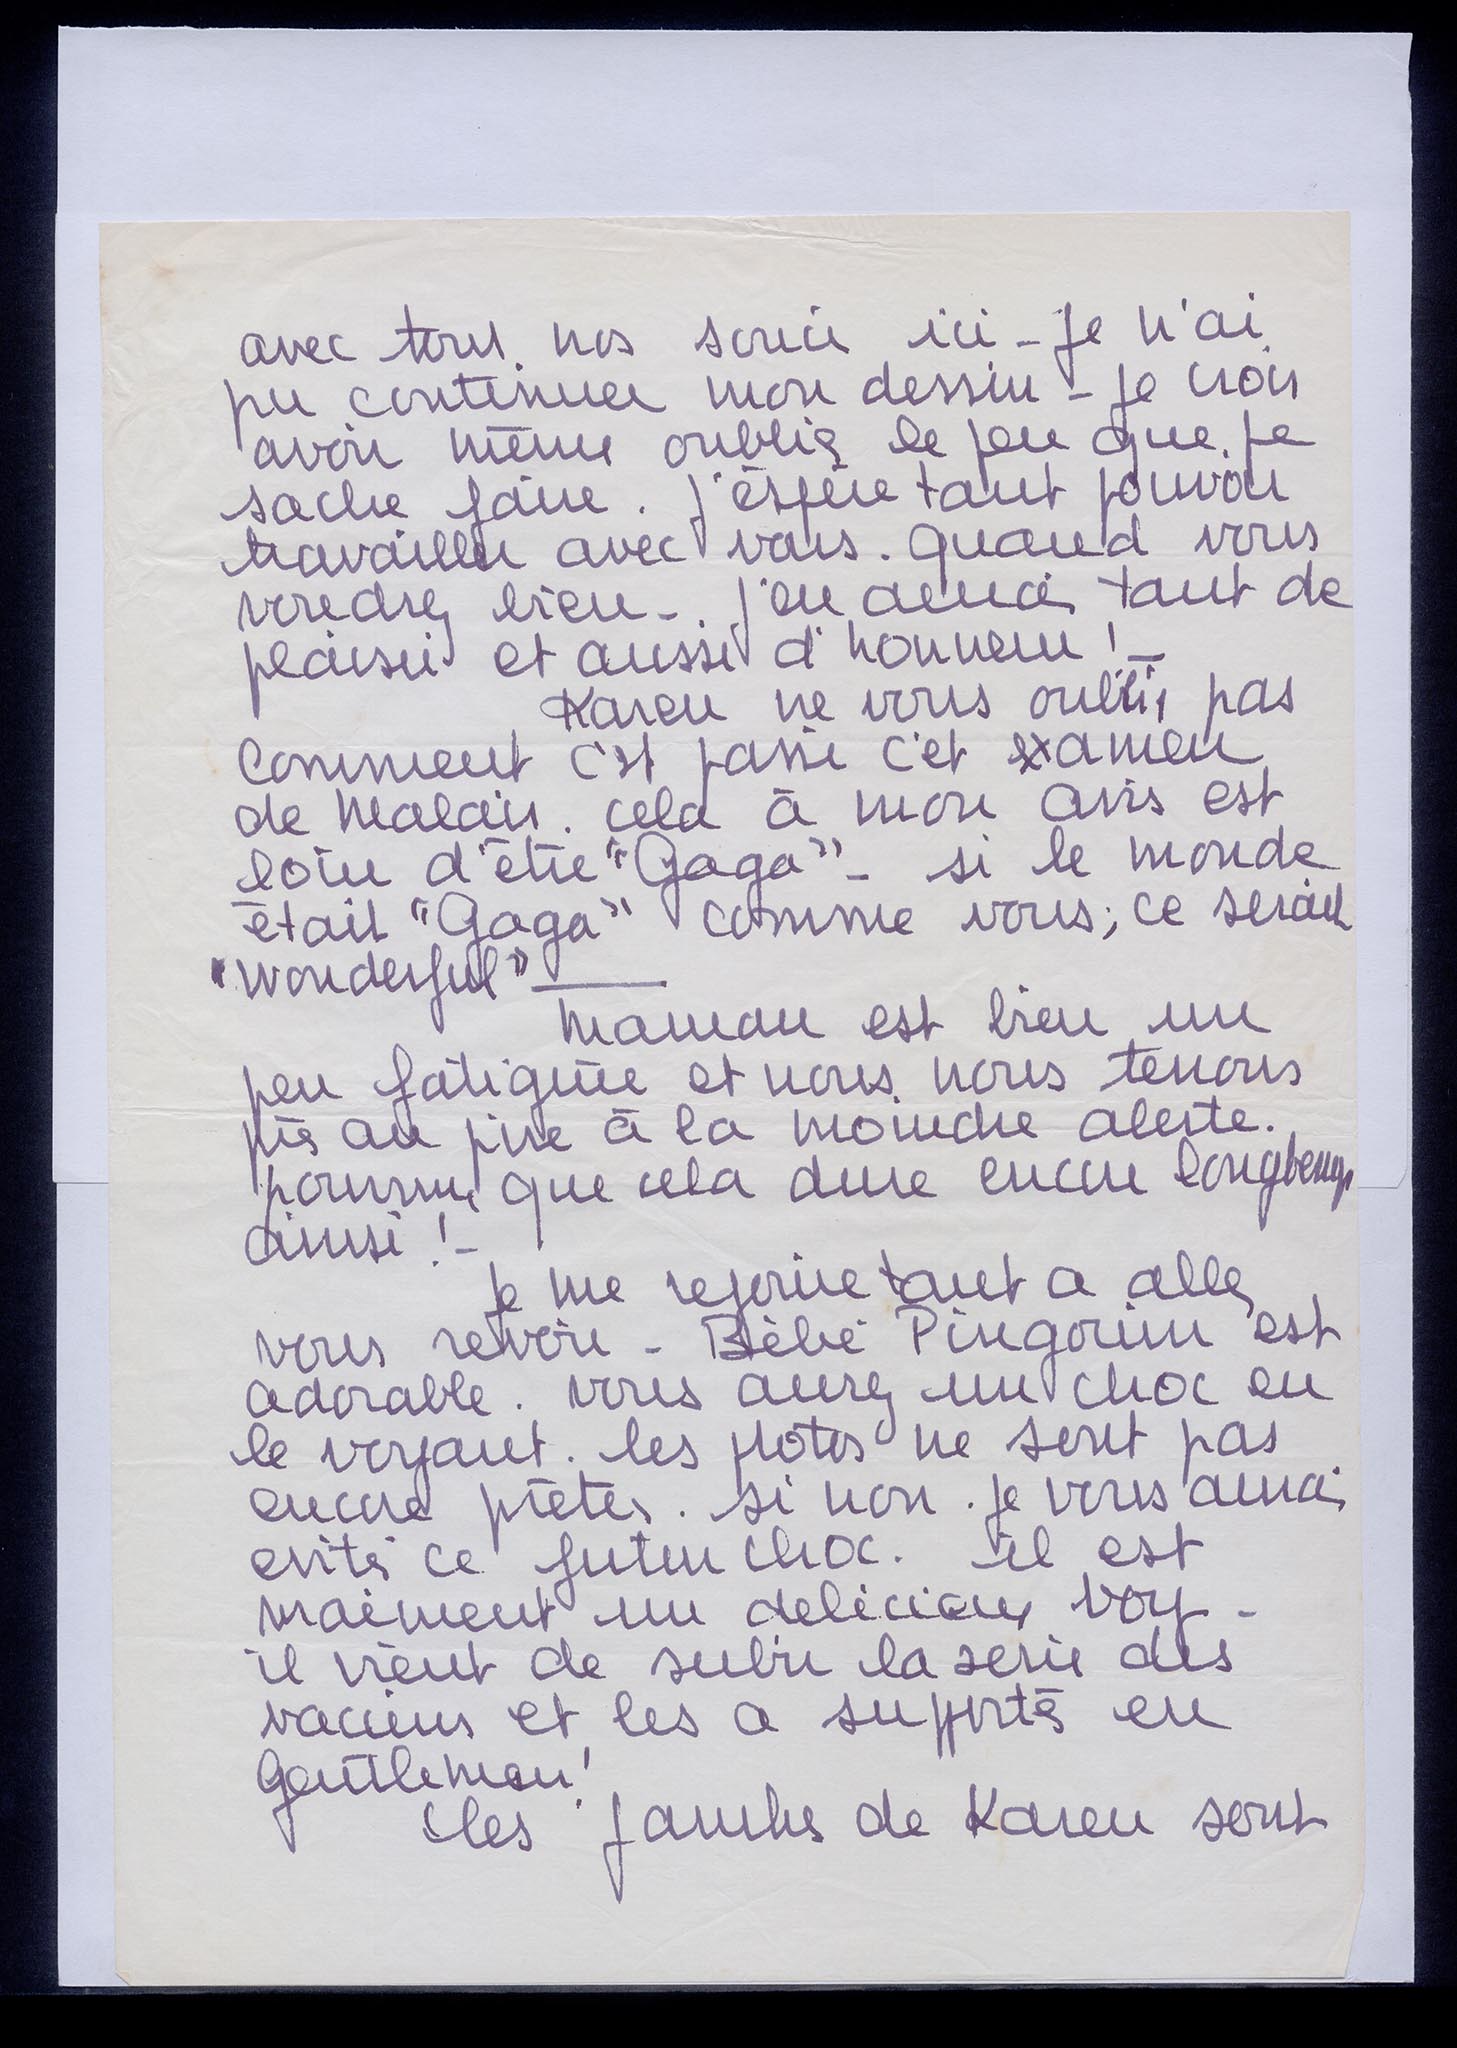 avec tous nos soucis ici - je n'ai
pu continuer mon dessin - je crois
avoir même oublié le peu que je
sache faire. j'éspère tant pouvoir
travailler avec vous. quand vous
voudrez bien - j'en aurais tant de
plaisir et aussi d'honneur ! -
Karen ne vous oublie pas
Comment c'est passé c'et examen
de Malais. cela à mon avis est
loin d'être "Gaga" - si le monde
était "Gaga" comme vous ; ce serait
"Wonderful" —
Maman est bien un
peu fatiguée et nous nous tenons
près au pire à la moindre alerte.
pourvu que cela dure encore longtemps
ainsi ! -
je me rejouie tant a aller
vous revoir - Bébé Pingouin est
adorable. vous aurez un choc en
le voyant. les photos ne sont pas
encore prêtes. si non. je vous aurais
evité ce futur choc. il est
vraiment un delicieux boy -
il vient de subir la serie des
vaccins et les a supporté en
Gentleman !
les jambes de Karen sont